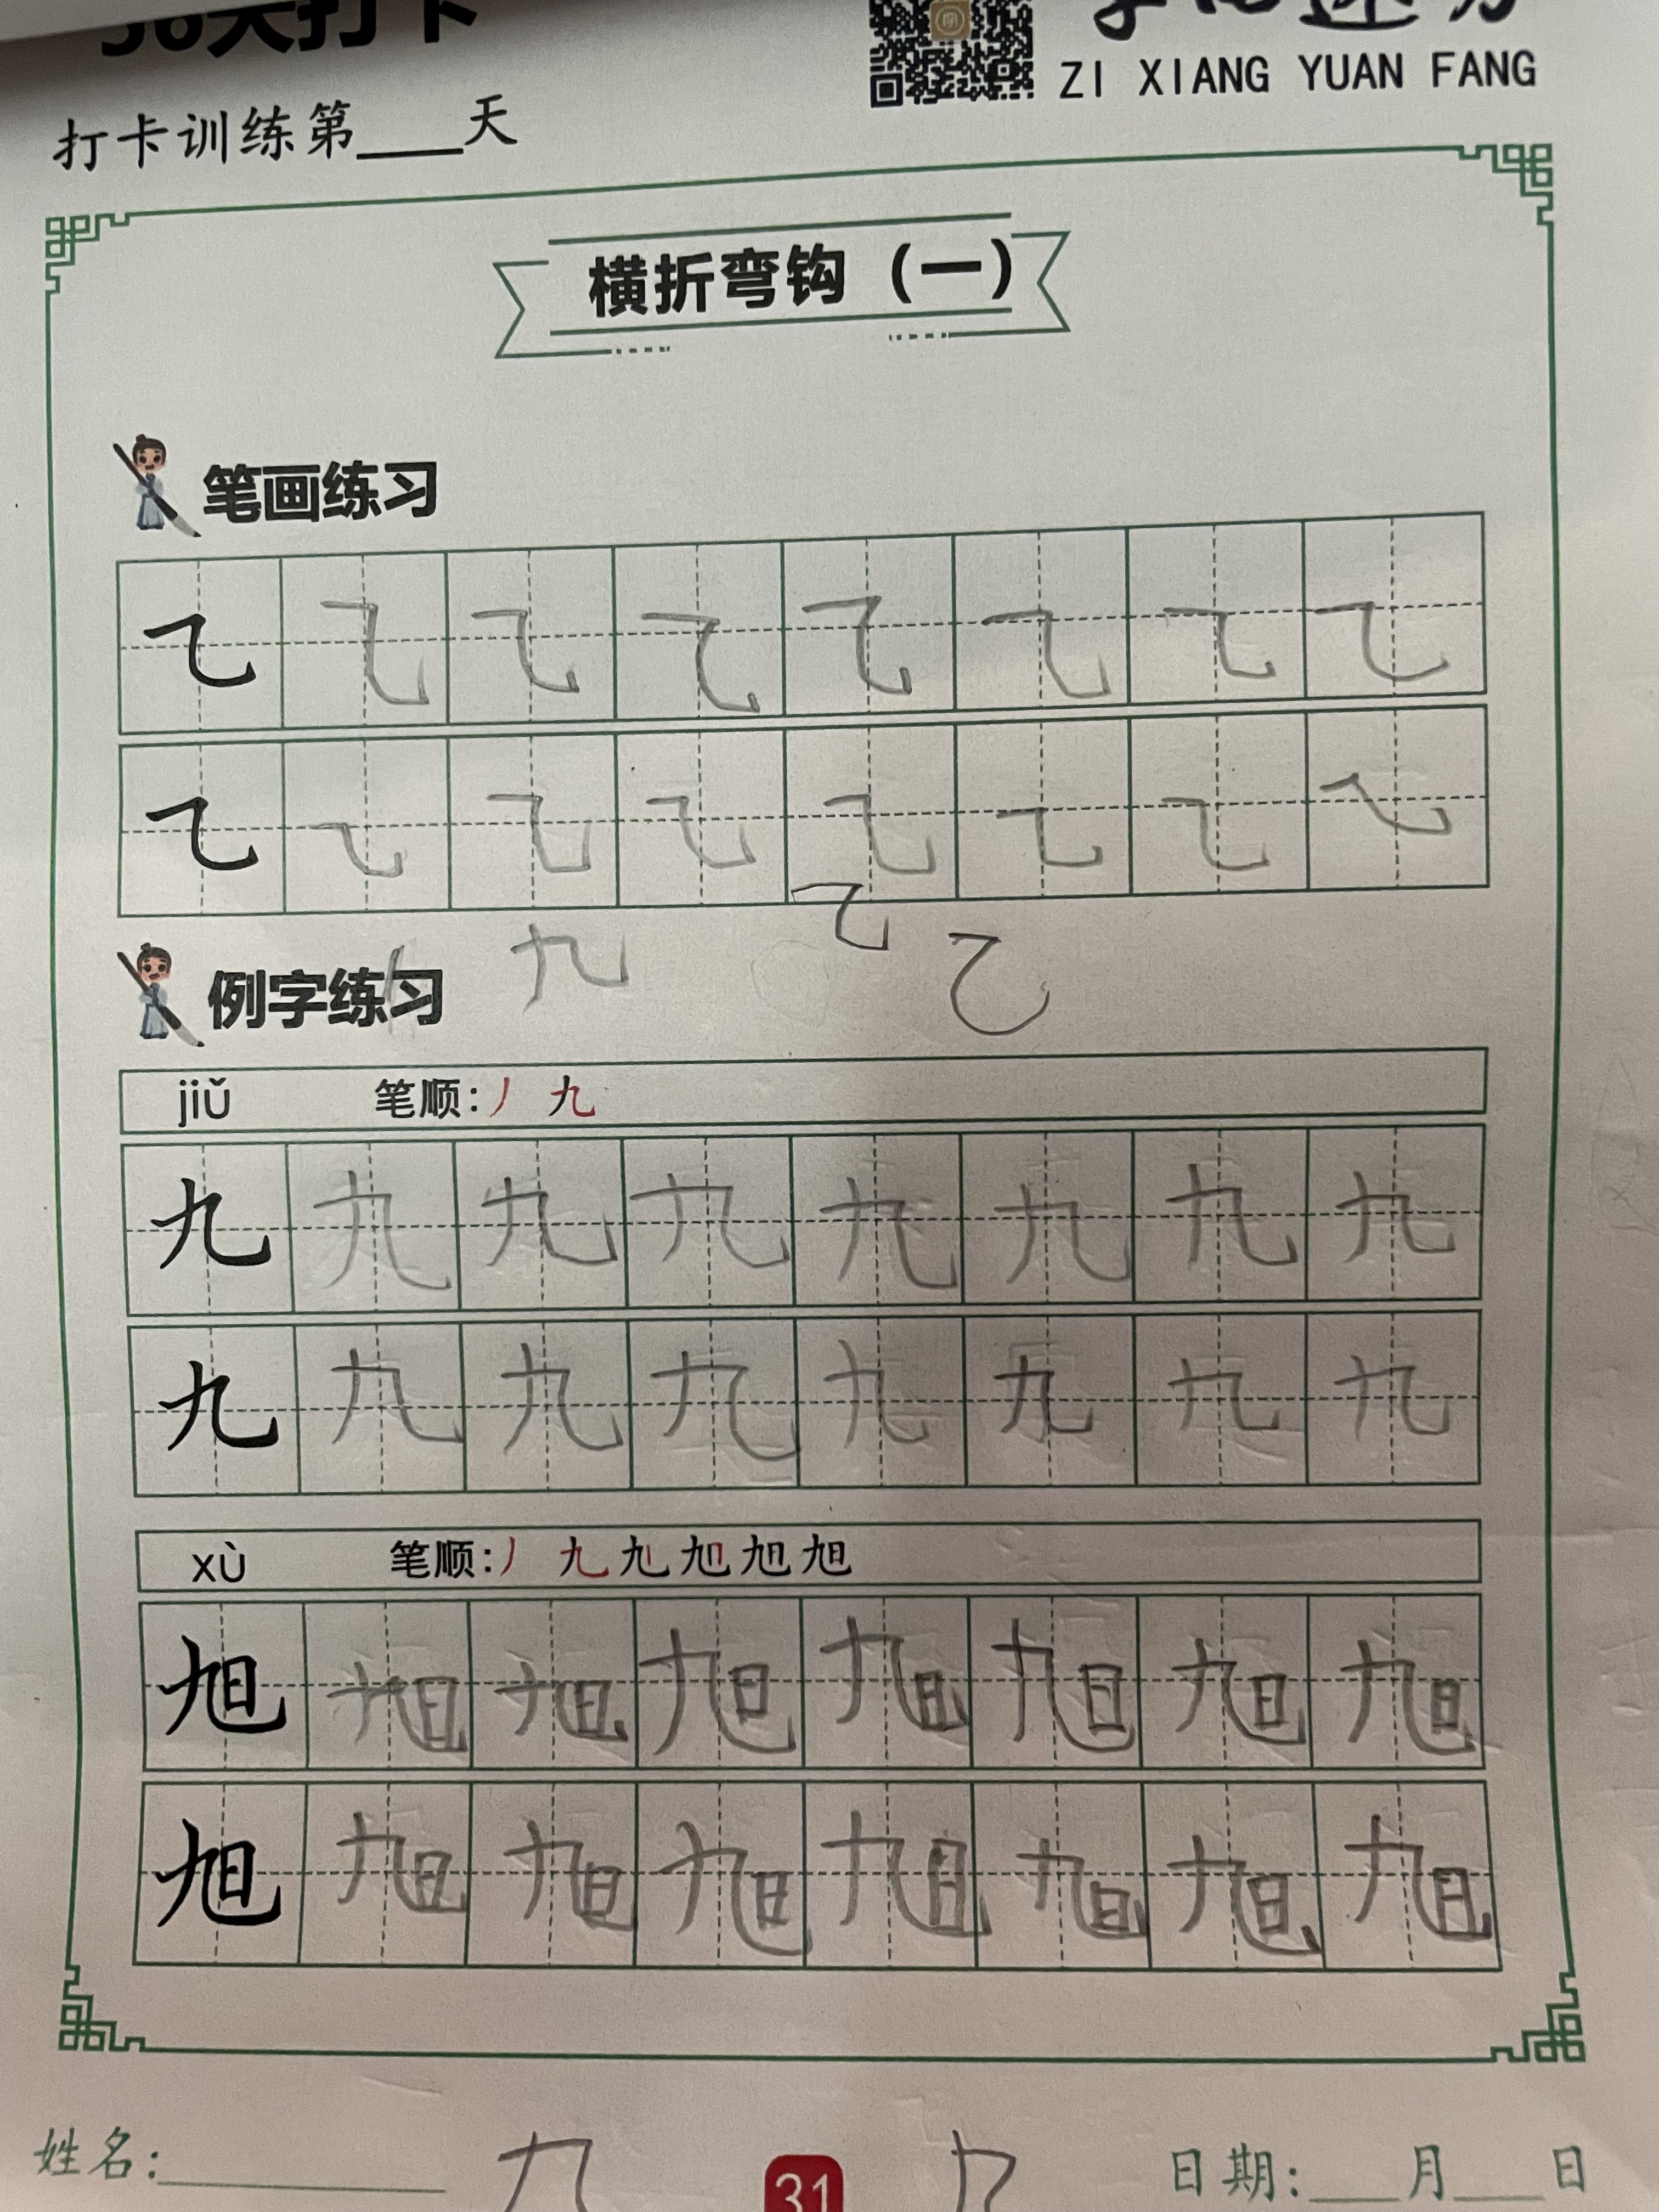 天打卡
ZI XIANG YUAN FANG
打卡训练第____天
横折弯钩（一）
笔画练习
㇈ ㇈ ㇈ ㇈ ㇈ ㇈ ㇈ ㇈
㇈ ㇈ ㇈ ㇈ ㇈ ㇈ ㇈ ㇈
九 ㇈ 乙
例字练习
jiǔ 笔顺:丿 九
九 九 九 九 九 九 九 九
九 九 九 九 九 九 九 九
xù 笔顺:丿 九 旭
旭 旭 旭 旭 旭 旭 旭 旭
旭 旭 旭 旭 旭 旭 旭 旭
姓名:____ 31 日期:___月___日